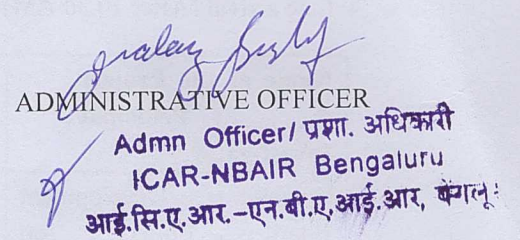 ADMINISTRATIVE OFFICER
Admn Officer/ प्रशा. अधिकारी
ICAR-NBAIR Bengaluru
आई.सि.ए.आर.-एन.बी.ए.आई.आर, बेंगलू